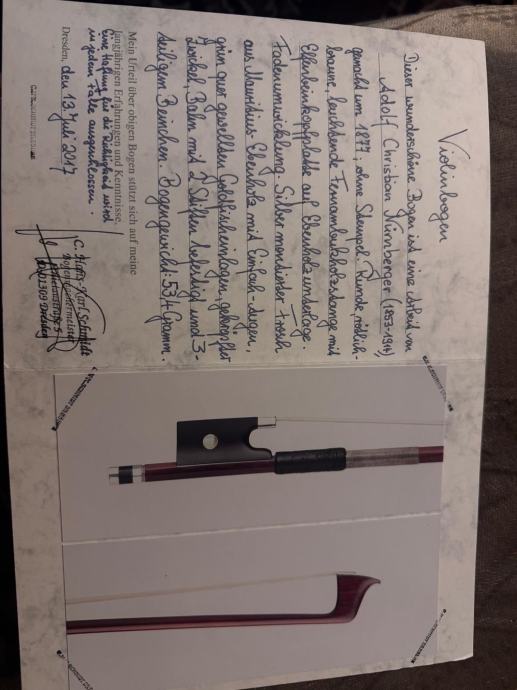 Violinbogen
Dieser wunderschöne Bogen ist eine Arbeit von
Adolf Christian Nürnberger (1853-1914)
gemacht um 1877, ohne Stempel. Runde, rötlich-
braune, leuchtende Fernambukholzstange mit
Elfenbeinkopfplatte auf Ebenholzunterlage.
Fadenumwicklung. Silber montierter Frosch
aus Mauritius-Ebenholz mit Einfach-Augen,
grün quer gewellten Goldfischeinbogen,
Zwickel, Bahn mit 2 Stiften befestigt und 3-
teiligem Beinchen. Bogengewicht: 53,7 Gramm.
Mein Urteil über obigen Bogen stützt sich auf meine
langjährigen Erfahrungen und Kenntnisse.
Eine Haftung für die Richtigkeit wird
in jedem Falle ausgeschlossen.
Dresden, den 13. Juli 2017
C. Hans-Karl Schmidt
Bogenbaumeister
01309 Dresden